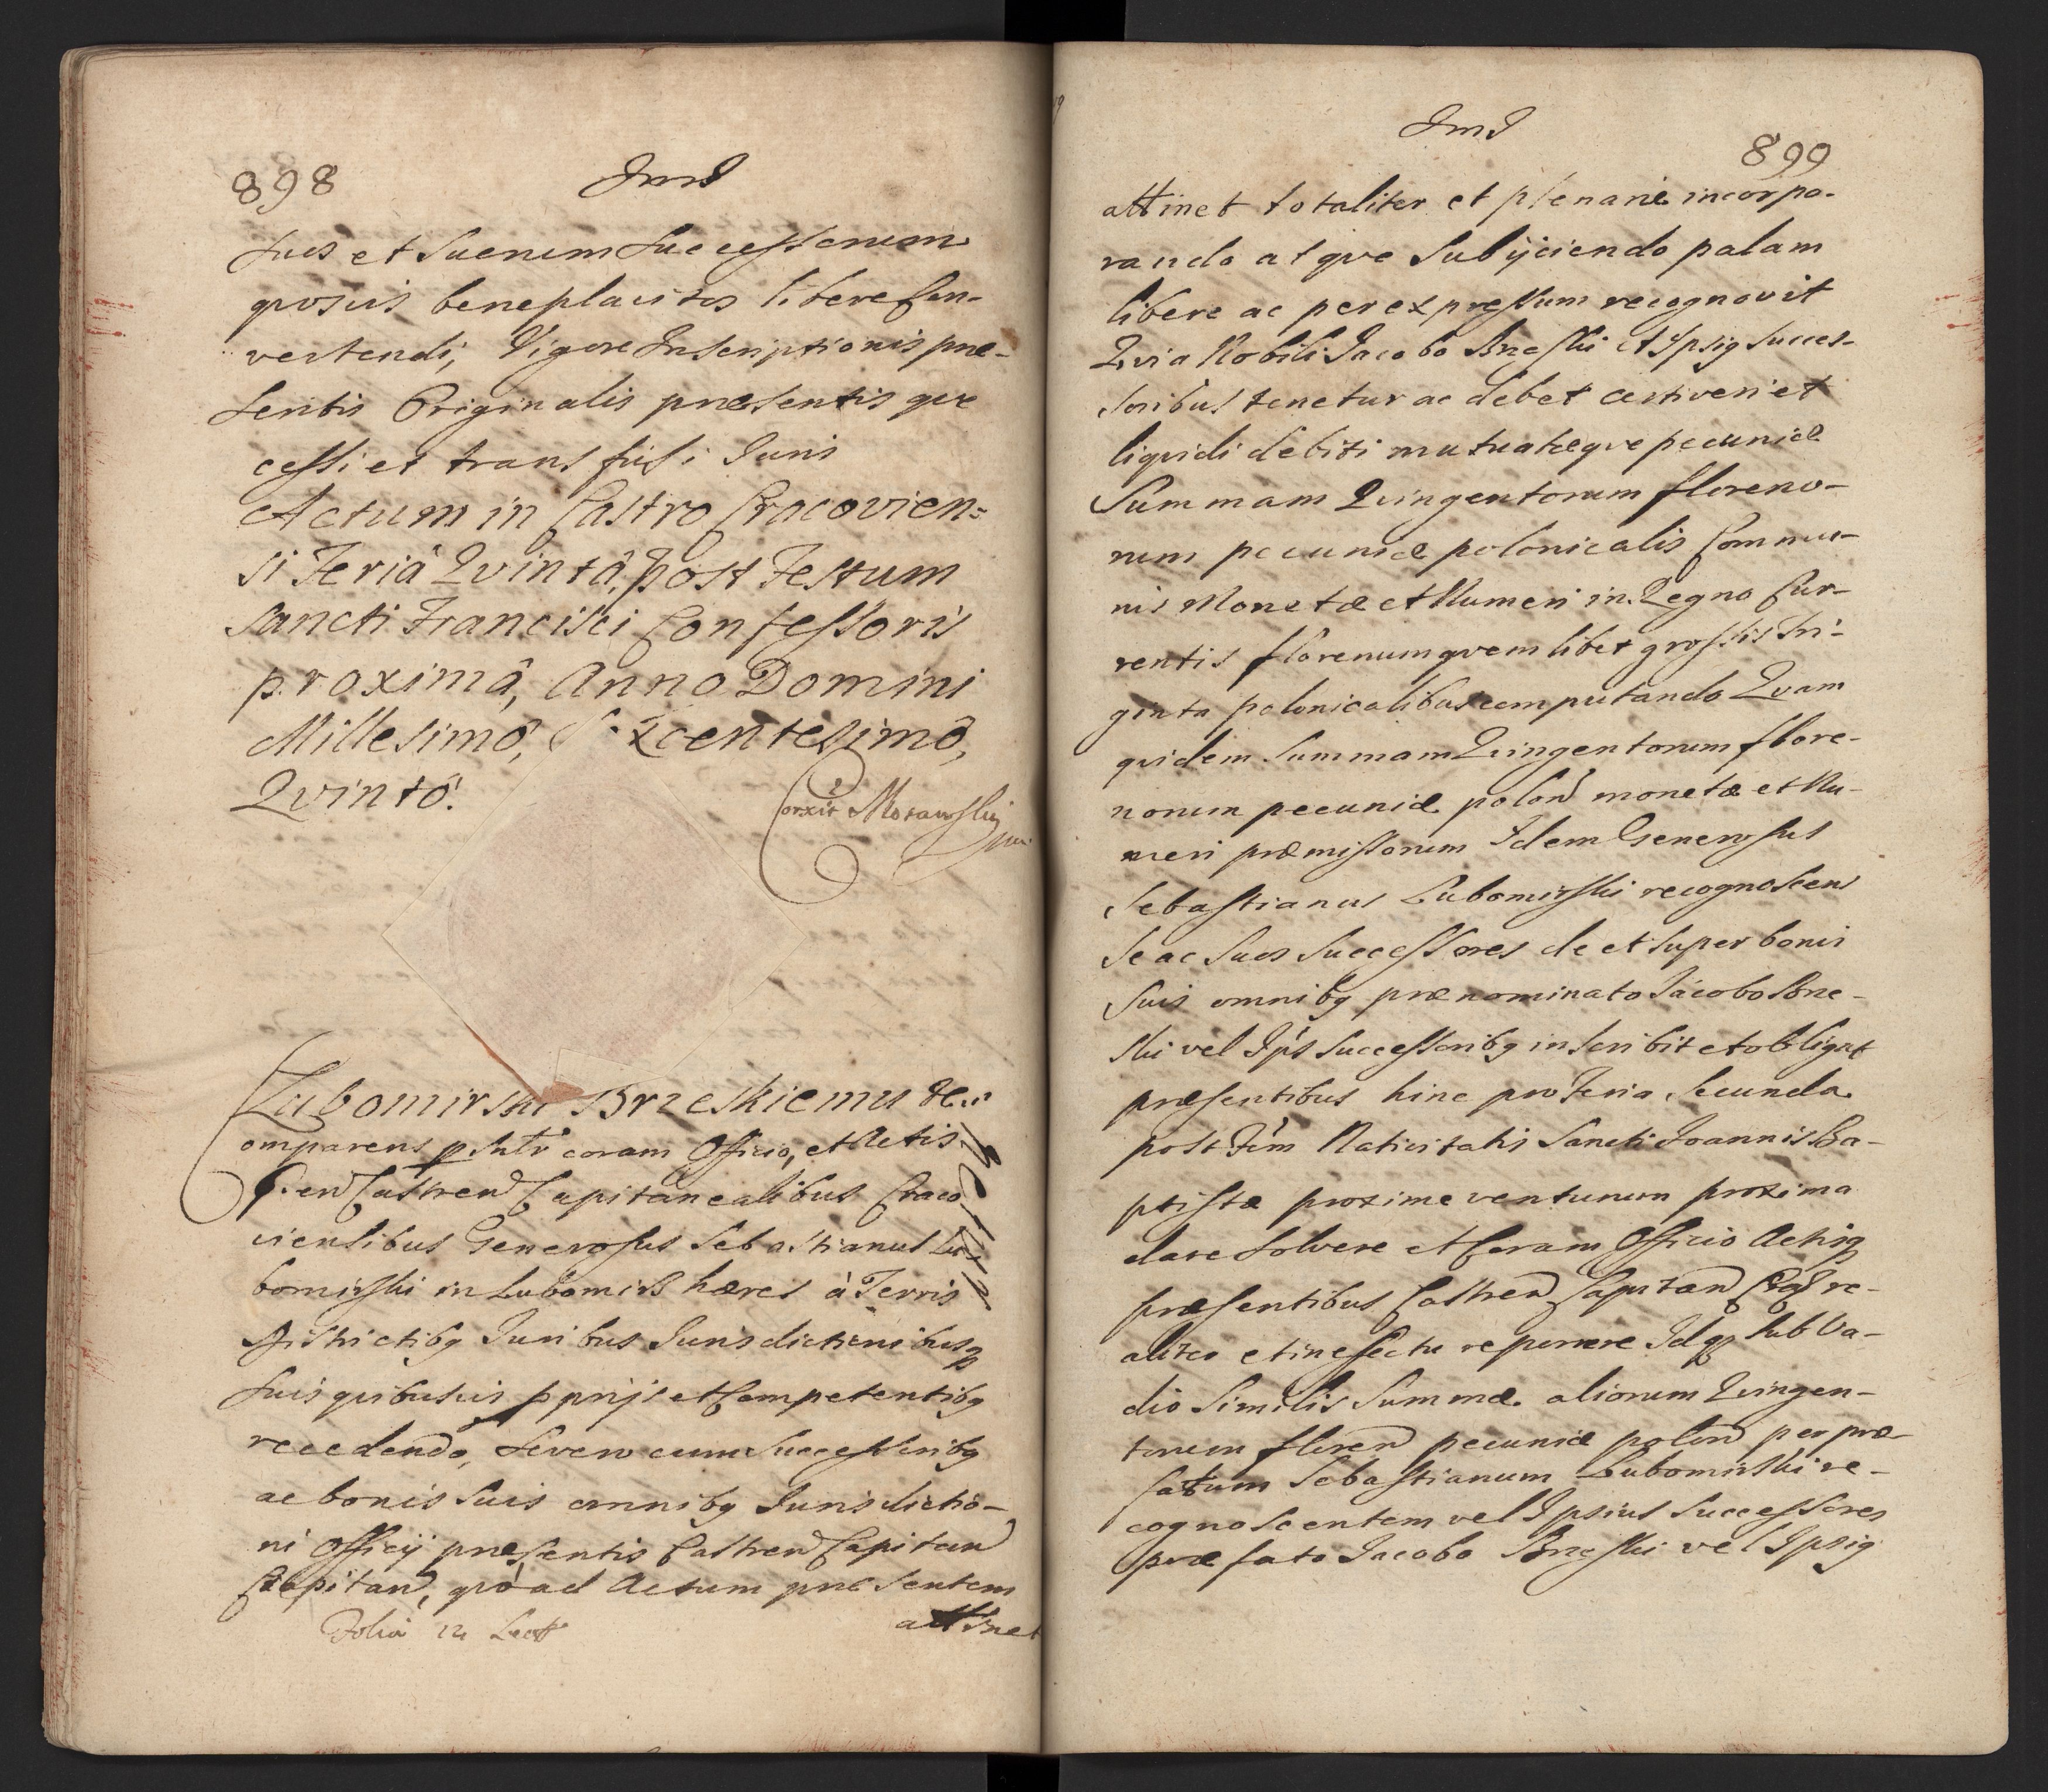 898
suos et Suorum Successorum
quosvis beneplacitos libere Con-
vertendi, Vigore Inscriptionis præ-
sentis Originalis præsentis qve
cessi et transfusi Juris
Actum in Castro Cracovien=
si Feriâ Qvintâ, post Festum
Sancti Francisci Confessoris
proximâ, Anno Domini
Millesimô, Sexcentesimô,
Qvintô.
Corxit Morawski
Lubomirski Brzeskiemu
Comparens p[er]s[ona]l[ite]r coram Officio, et Actis
Castren Capitanealibus Craco
viensibus Generosus Sebastianus Lu
bomirski in Lubomirz hæres à Terris
Districtibq Juribus Jurisdictionibusq
suis qvibusvis pprijs et Competentibq
recedendo, se vero cum Successoribq
ac bonis suis omnibq Jurisdictio-
ni Officij præsentis Castren Capitan
Capitan, qvo ad Actum præsentem
Folia 12
attinet
899
attinet totaliter et plenarie incorpo-
rando atqve Subijciendo palam
libere ac per expressum recognovit
Qvia Nobili Jacobo Brzeski et Ipsiq Succes-
soribus tenetur ac debet certi veri et
liqvidi debiti mutuatæqve pecuniæ
Summam Qvingentorum floreno-
rum pecuniæ polonicalis Commu-
nis Monetæ et Numeri in Regno Cur-
rentis florenum qvemlibet grossis Tri-
ginta polonicalibus computando Qvam
qvidem Summam Qvingentorum flore-
norum pecuniæ polon monetæ et Nu-
meri præmissorum Idem Generosus
Sebastianus Lubomirski recognoscens
se ac suos successores de et super bonis
suis omnibq prænominato Jacobo Brze-
ski vel Ips Successoribq inscribit et obligat
præsentibus hinc pro Feria Secunda
post Fm Nativitatis Sancti Joannis Ba-
ptistæ proxime venturum proxima
dare solvere et Coram Officio Actisq
præsentibus Castren Capitan Crac re-
aliter et in effectu reponere Idq sub Va-
dio similis Summæ aliorum Qvingen-
torum floren pecuniæ polon per præ-
fatum Sebastianum Lubomirski re-
cognoscentem vel Ipsius Successores
præfato Jacobo Brzeski vel Ipsiq